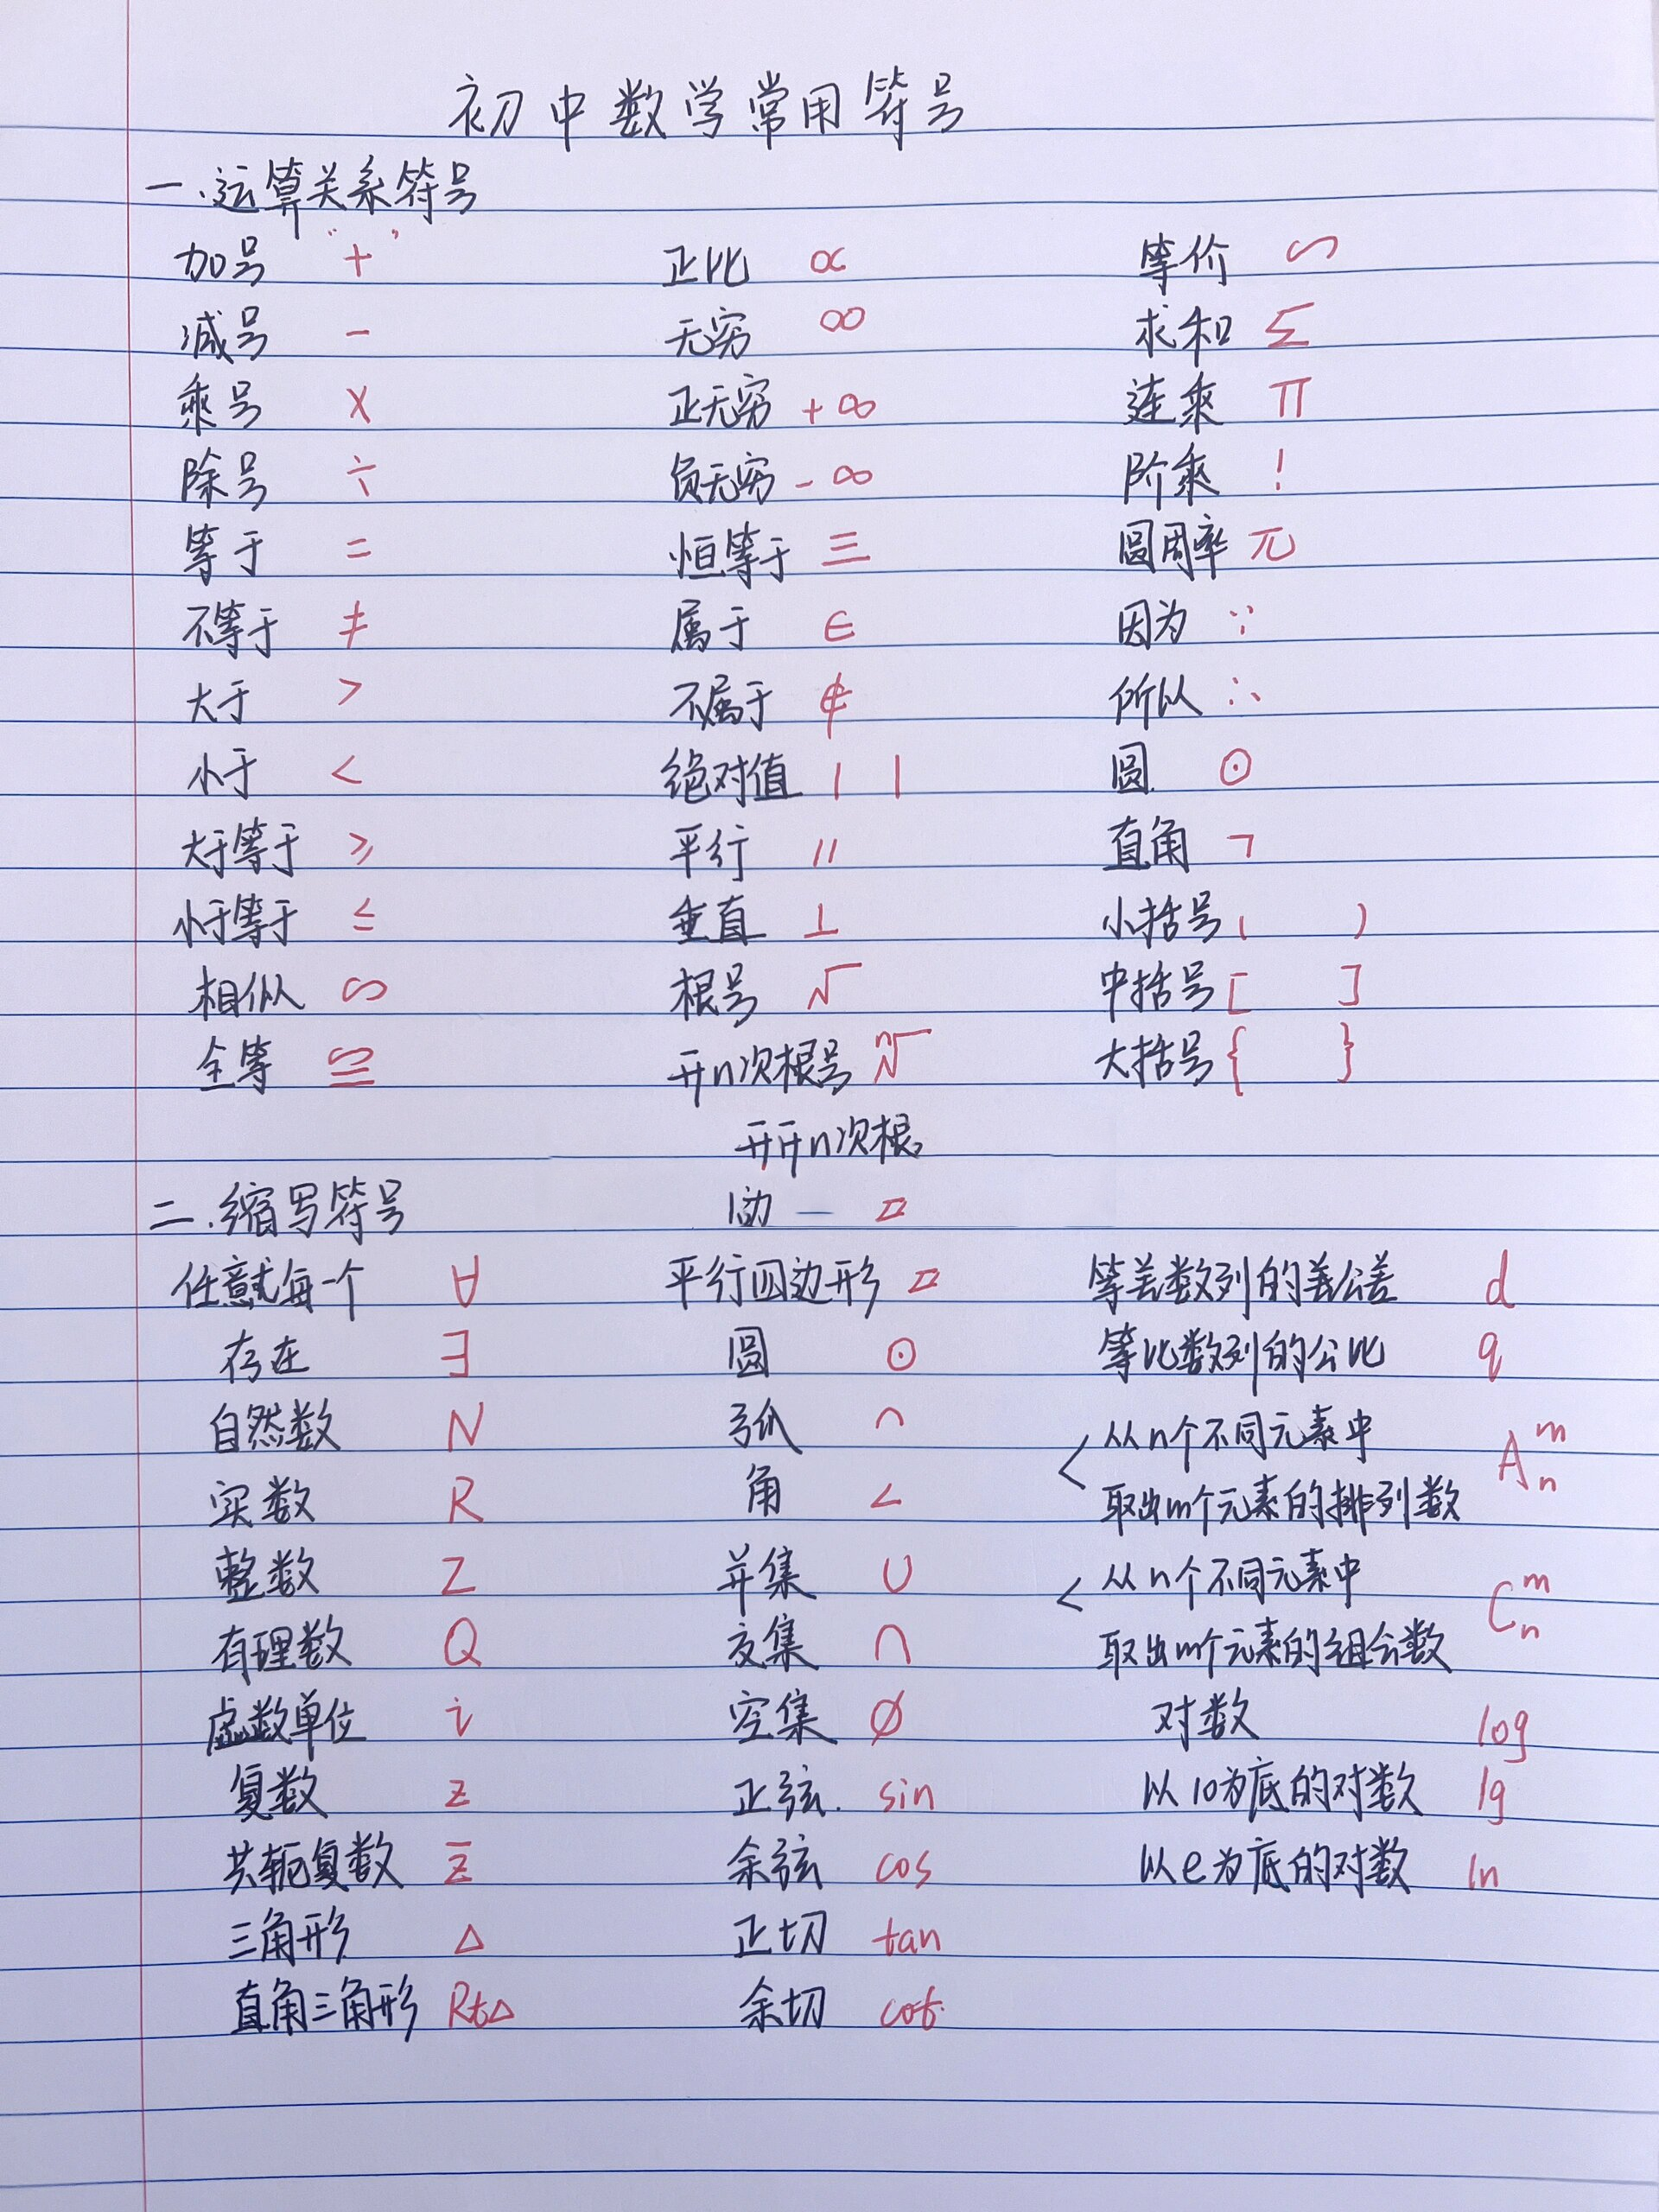 初中数学常用符号
一.运算关系符号
加号 “+” 正比 ∝ 等价 ∽
减号 - 无穷 ∞ 求和 Σ
乘号 × 正无穷 +∞ 连乘 Π
除号 ÷ 负无穷 -∞ 阶乘 !
等于 = 恒等于 ≡ 圆周率 π
不等于 ≠ 属于 ∈ 因为 ∵
大于 > 不属于 ∉ 所以 ∴
小于 < 绝对值 | | 圆 ⊙
大于等于 ≥ 平行 // 直角 ㄱ
小于等于 ≤ 垂直 ⊥ 小括号 ( )
相似 ∽ 根号 √ 中括号 [ ]
全等 ≌ 开n次根号 ⁿ√ 大括号 { }
开开n次根
二.缩写符号 — ▱
任意或每一个 ∀ 平行四边形 ▱ 等差数列的差公差 d
存在 ∃ 圆 ⊙ 等比数列的公比 q
自然数 N 弧 ⌒ 从n个不同元素中
实数 R 角 ∠ 取出m个元素的排列数 Aₙᵐ
整数 Z 并集 ∪ 从n个不同元素中
有理数 Q 交集 ∩ 取出m个元素的组合数 Cₙᵐ
虚数单位 i 空集 ∅ 对数 log
复数 z 正弦. sin 以10为底的对数 lg
共轭复数 z̅ 余弦 cos 以e为底的对数 ln
三角形 △ 正切 tan
直角三角形 Rt△ 余切 cot.